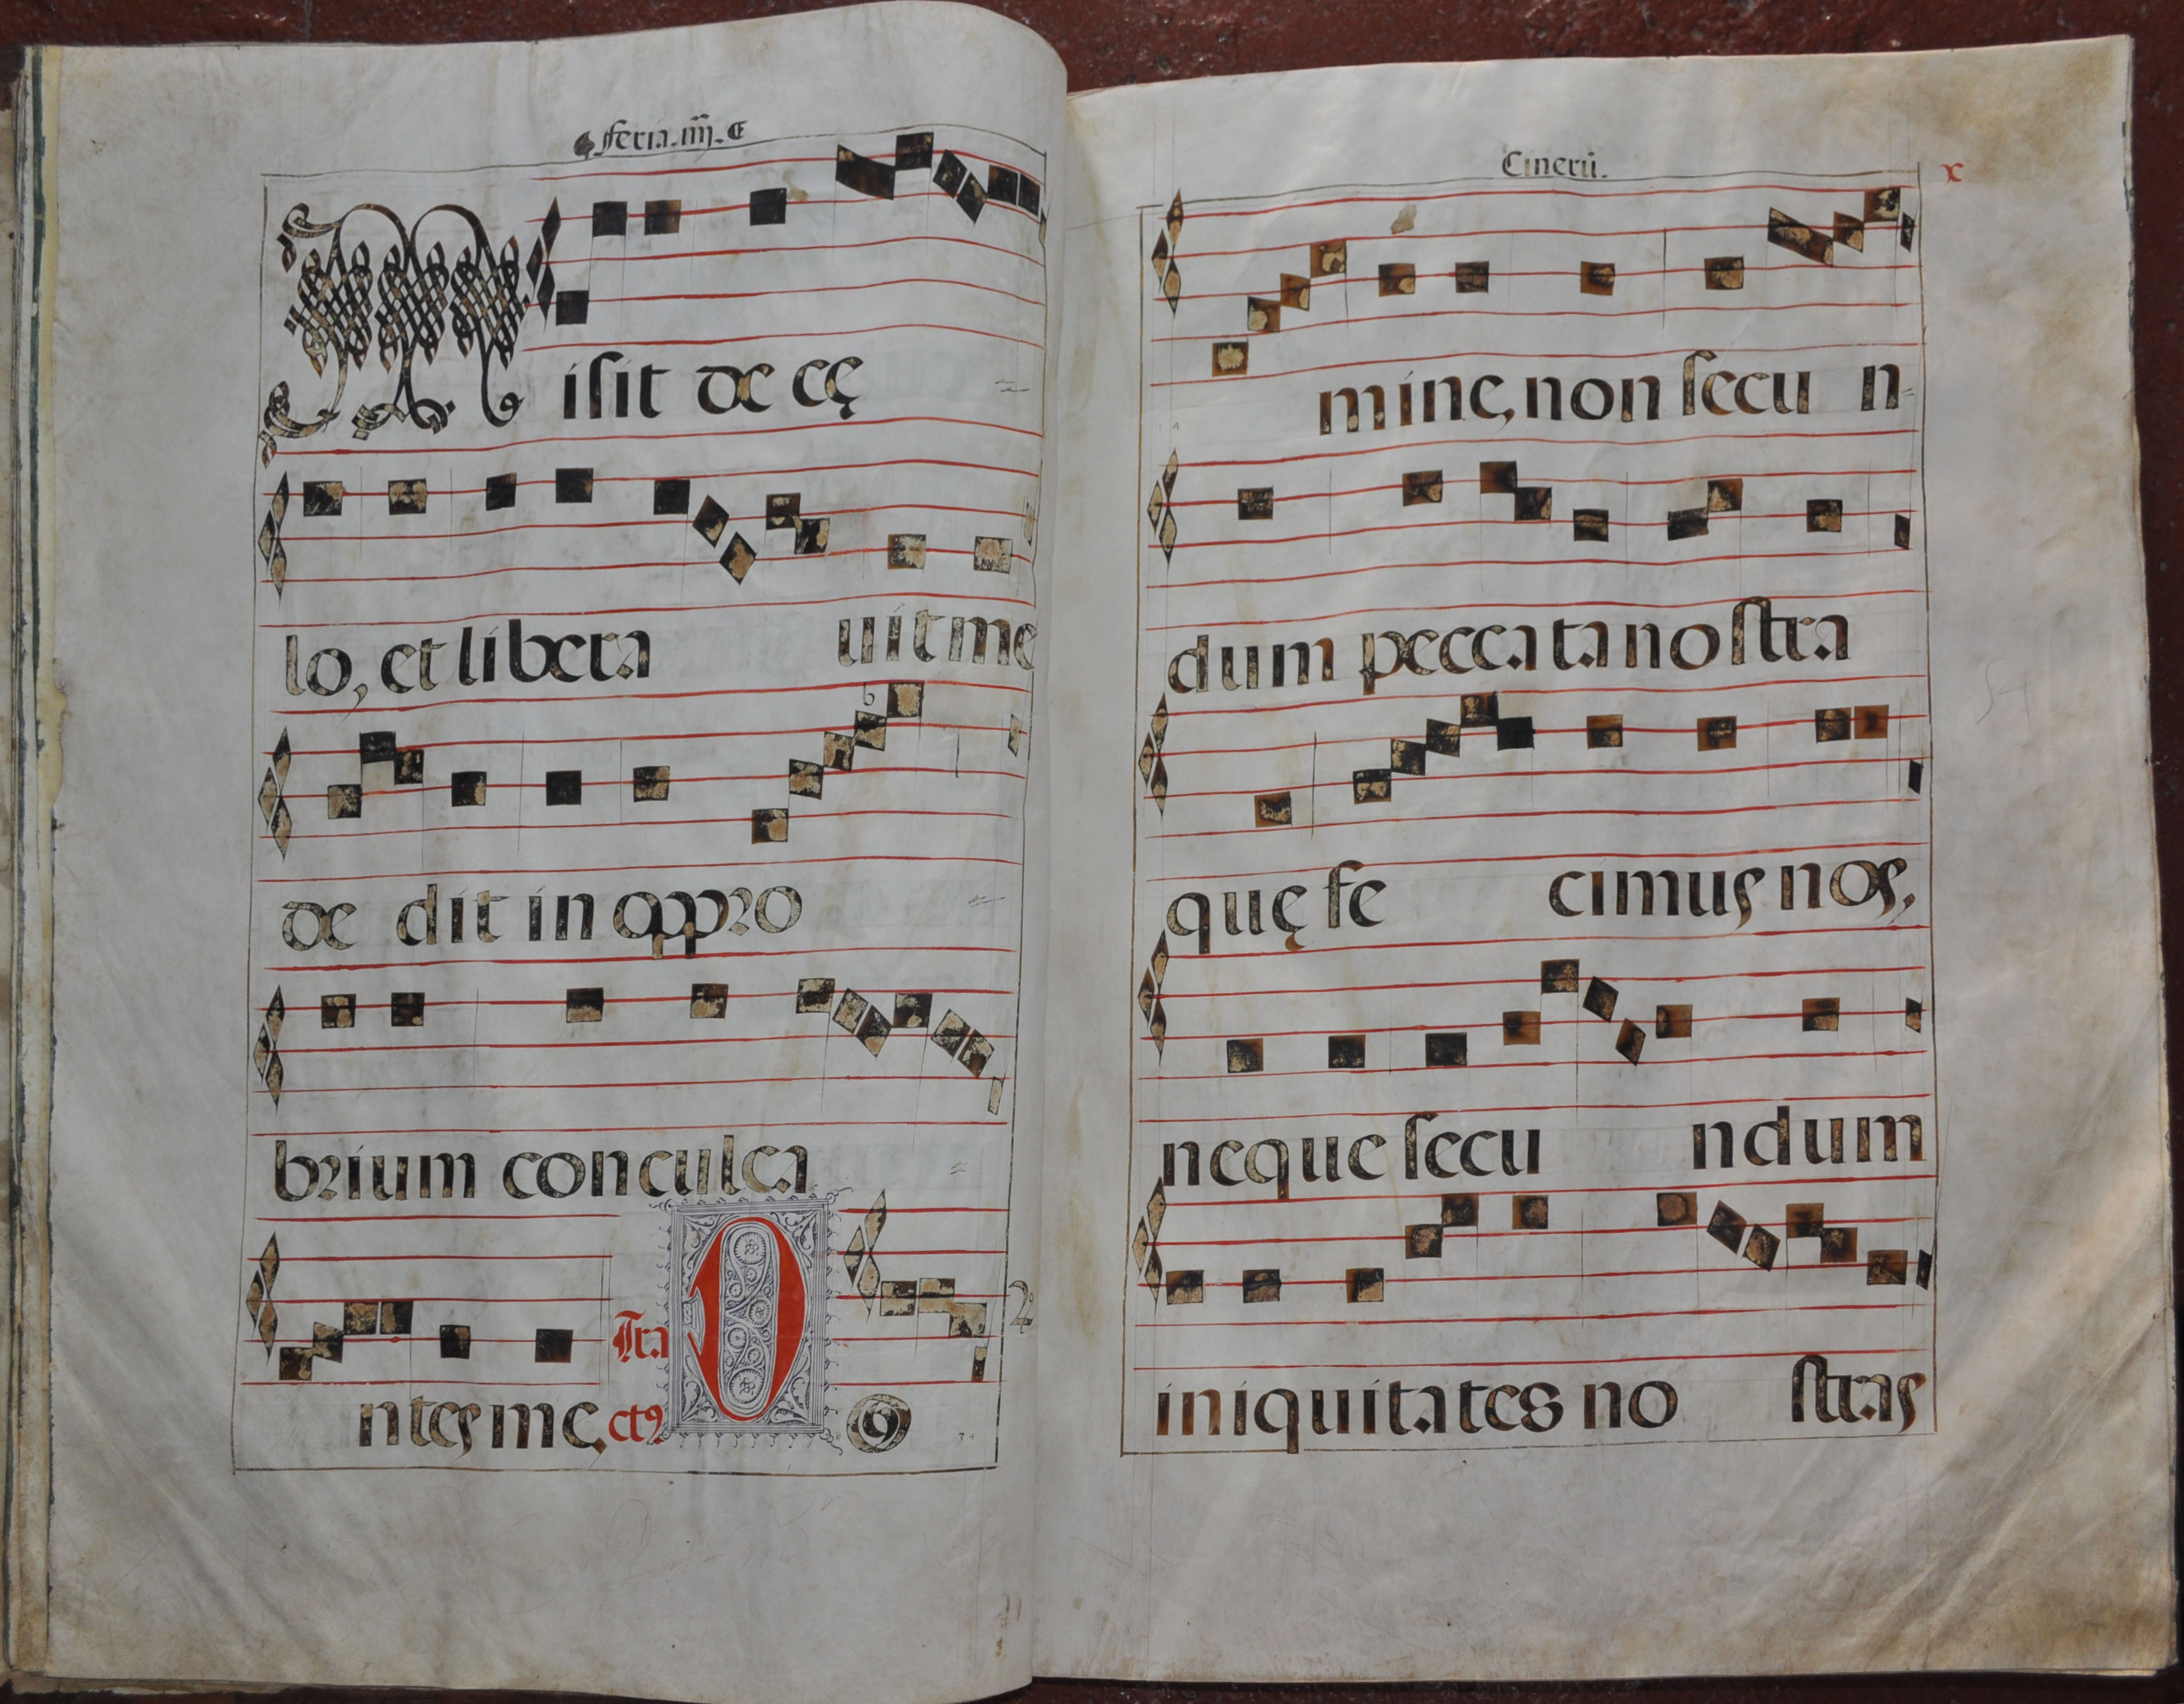 feria. iiij. C
Misit de cę
lo, et libera uit me
de dit in oppro
brium conculca
ntes me, Tra
ct9 D 9
Cinerū. x
mine, non secu n
dum peccata nostra
quę fe cimus nos,
neque secu ndum
iniquitates no stras